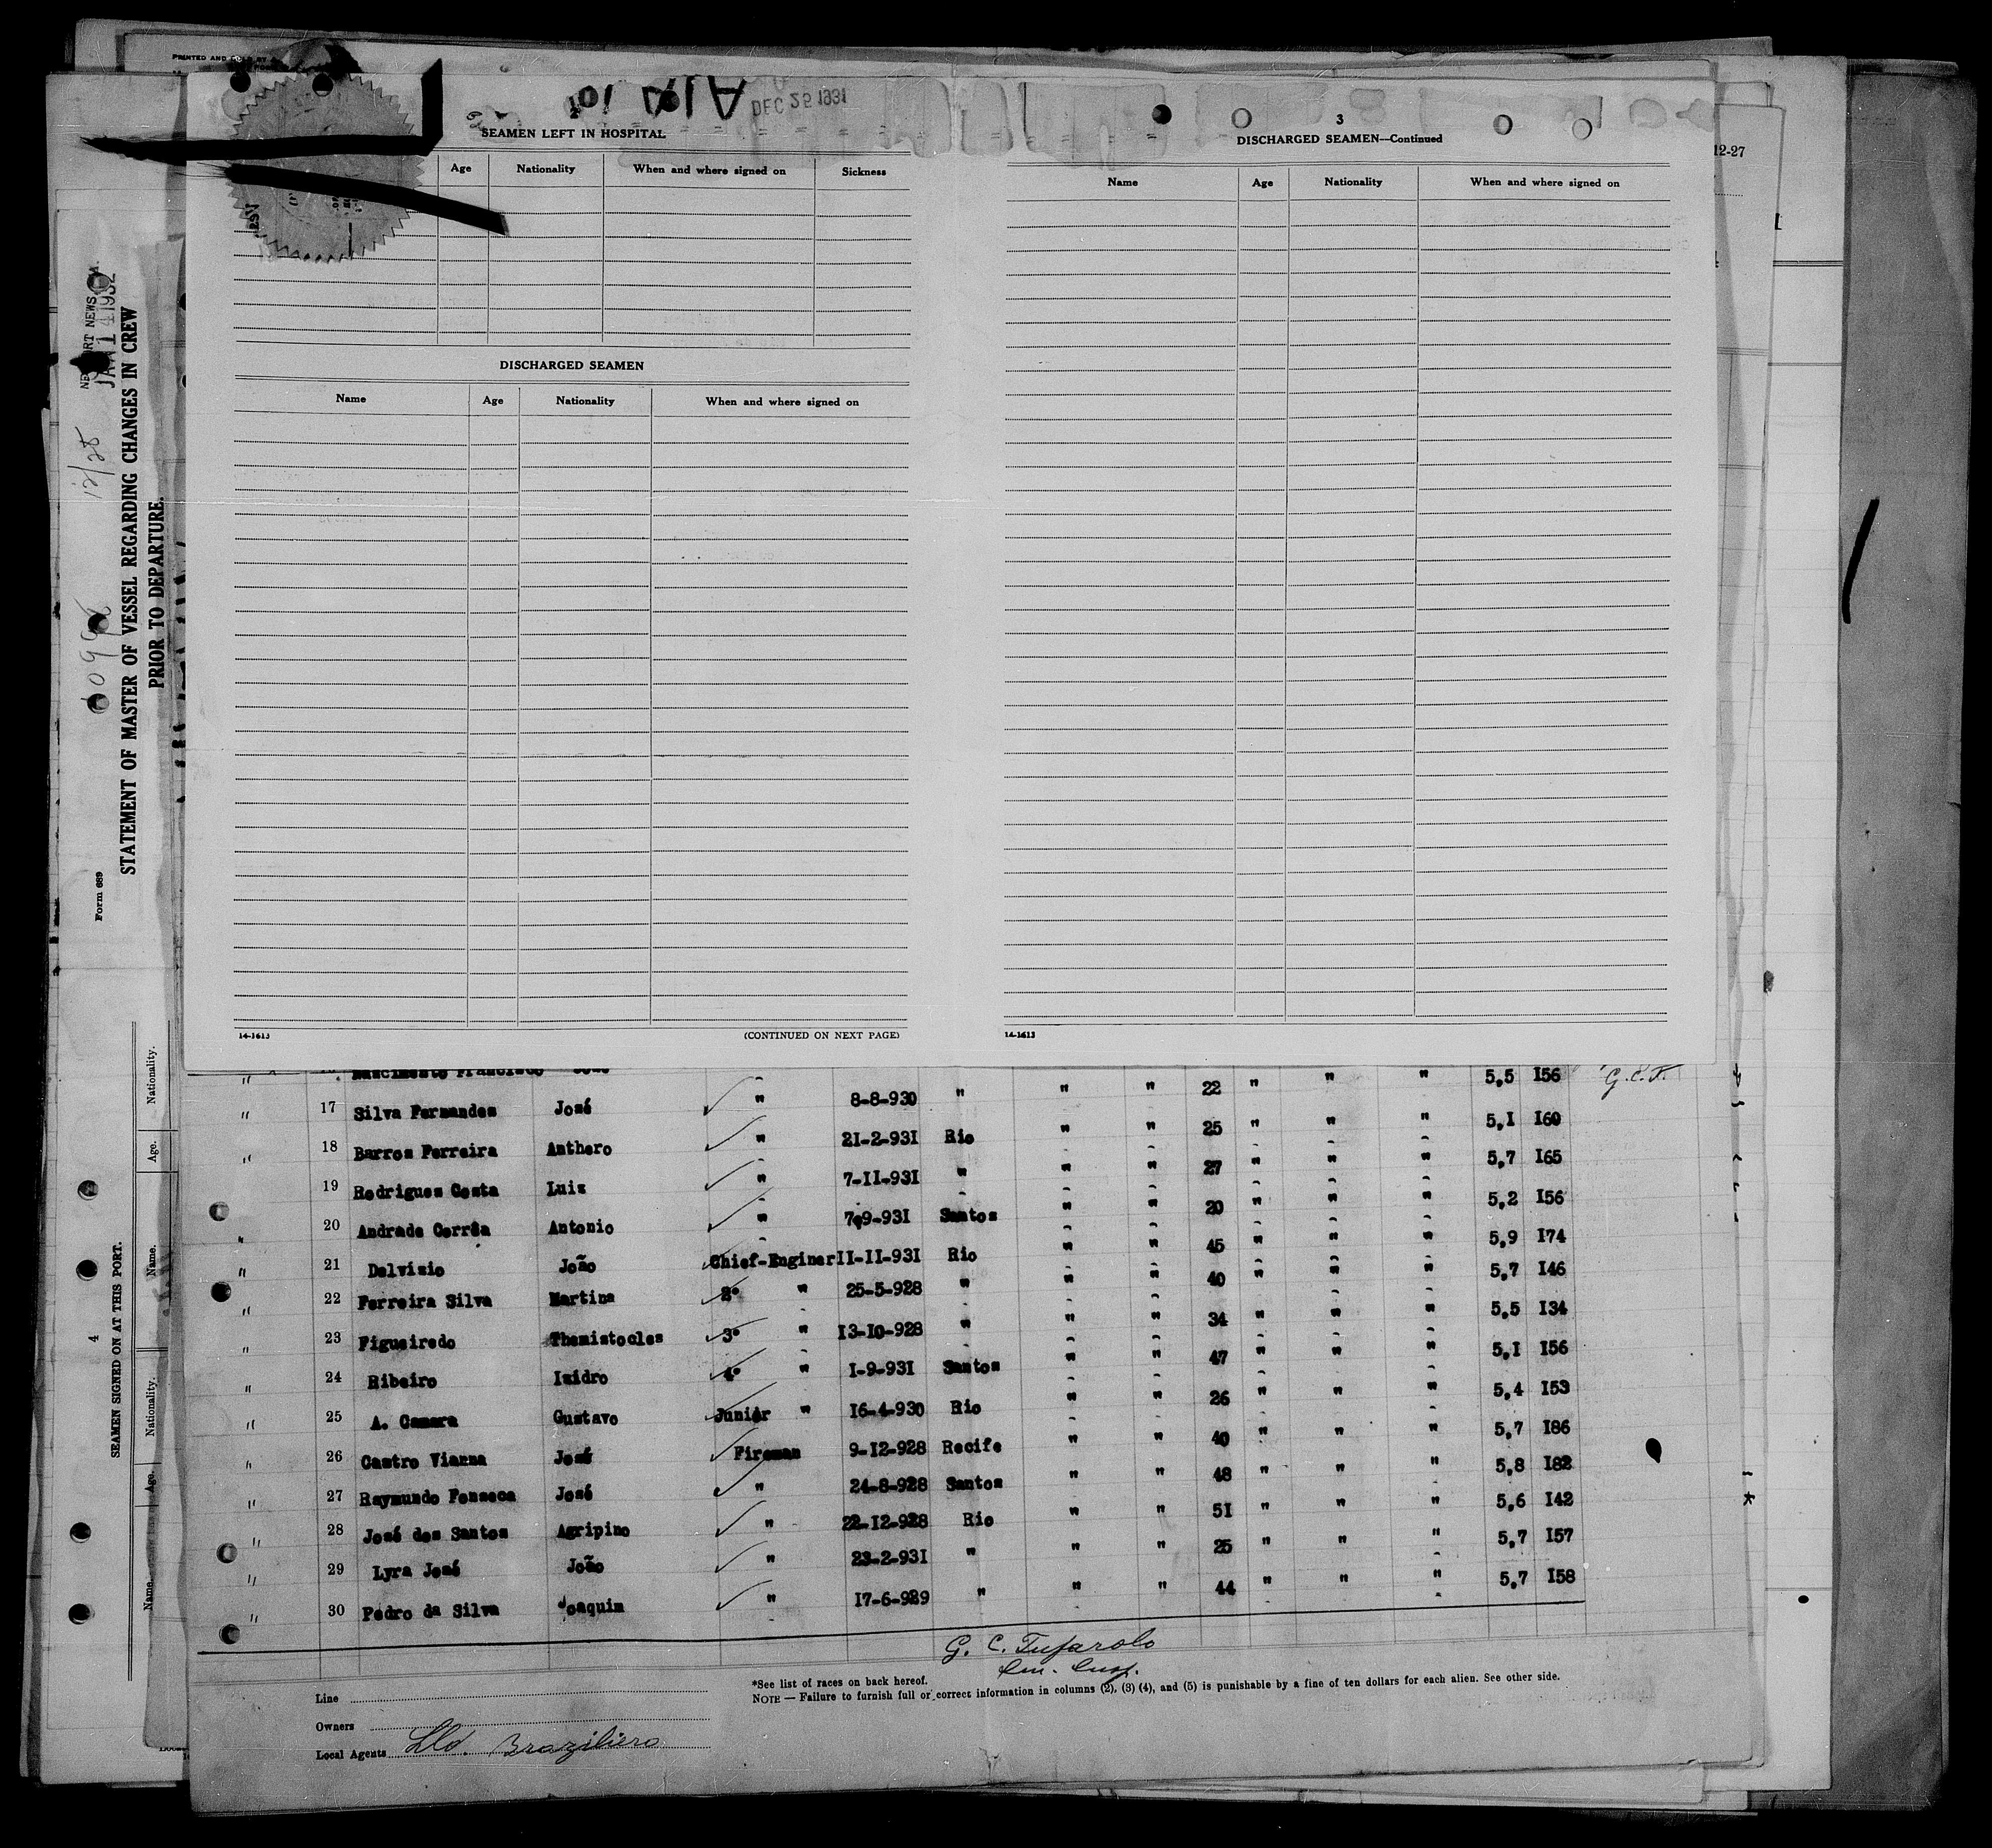 PRINTED AND SOLD BY
DEC 25 1931
SEAMEN LEFT IN HOSPITAL
Age Nationality When and where signed on Sickness
DISCHARGED SEAMEN
Name Age Nationality When and where signed on
14-1613 (CONTINUED ON NEXT PAGE)
3
DISCHARGED SEAMEN—Continued
Name Age Nationality When and where signed on
14-1613
12-27
NEWPORT NEWS
JAN 14 1932
12/28
Form 689
STATEMENT OF MASTER OF VESSEL REGARDING CHANGES IN CREW
PRIOR TO DEPARTURE.
4
SEAMEN SIGNED ON AT THIS PORT.
Name. Age. Nationality. Name. Age. Nationality.
" Nascimento Francisco " " 22 " " " 5,5 I56 G.C.T.
" 17 Silva Fernandes José " 8-8-930 " " " 25 " " " 5,I I60
" 18 Barros Ferreira Anthero " 2I-2-93I Rio " " 27 " " " 5,7 I65
" 19 Rodrigues Costa Luiz " 7-II-93I " " " 20 " " " 5,2 I56
" 20 Andrade Corrêa Antonio " 7-9-93I Santos " " 45 " " " 5,9 I74
" 21 Delvizio João Chief-Enginer II-II-93I Rio " " 40 " " " 5,7 I46
" 22 Ferreira Silva Martins 2º " 25-5-928 " " " 34 " " " 5,5 I34
" 23 Figueiredo Themistocles 3º " I3-I0-928 " " " 47 " " " 5,I I56
" 24 Ribeiro Izidro 4º " I-9-93I Santos " " 26 " " " 5,4 I53
" 25 A. Camara Gustavo Junior " I6-4-930 Rio " " 40 " " " 5,7 I86
" 26 Castro Vianna José Fireman 9-I2-928 Recife " " 48 " " " 5,8 I82
" 27 Raymundo Fonseca José " 24-8-928 Santos " " 5I " " " 5,6 I42
" 28 José dos Santos Agripino " 22-I2-928 Rio " " 25 " " " 5,7 I57
" 29 Lyra José João " 23-2-93I " " " 44 " " " 5,7 I58
" 30 Pedro da Silva Joaquim " I7-6-929 "
G. C. Tufarolo
Im. Insp.
*See list of races on back hereof.
NOTE — Failure to furnish full or correct information in columns (2), (3) (4), and (5) is punishable by a fine of ten dollars for each alien. See other side.
Line
Owners
Local Agents Lld. Braziliero